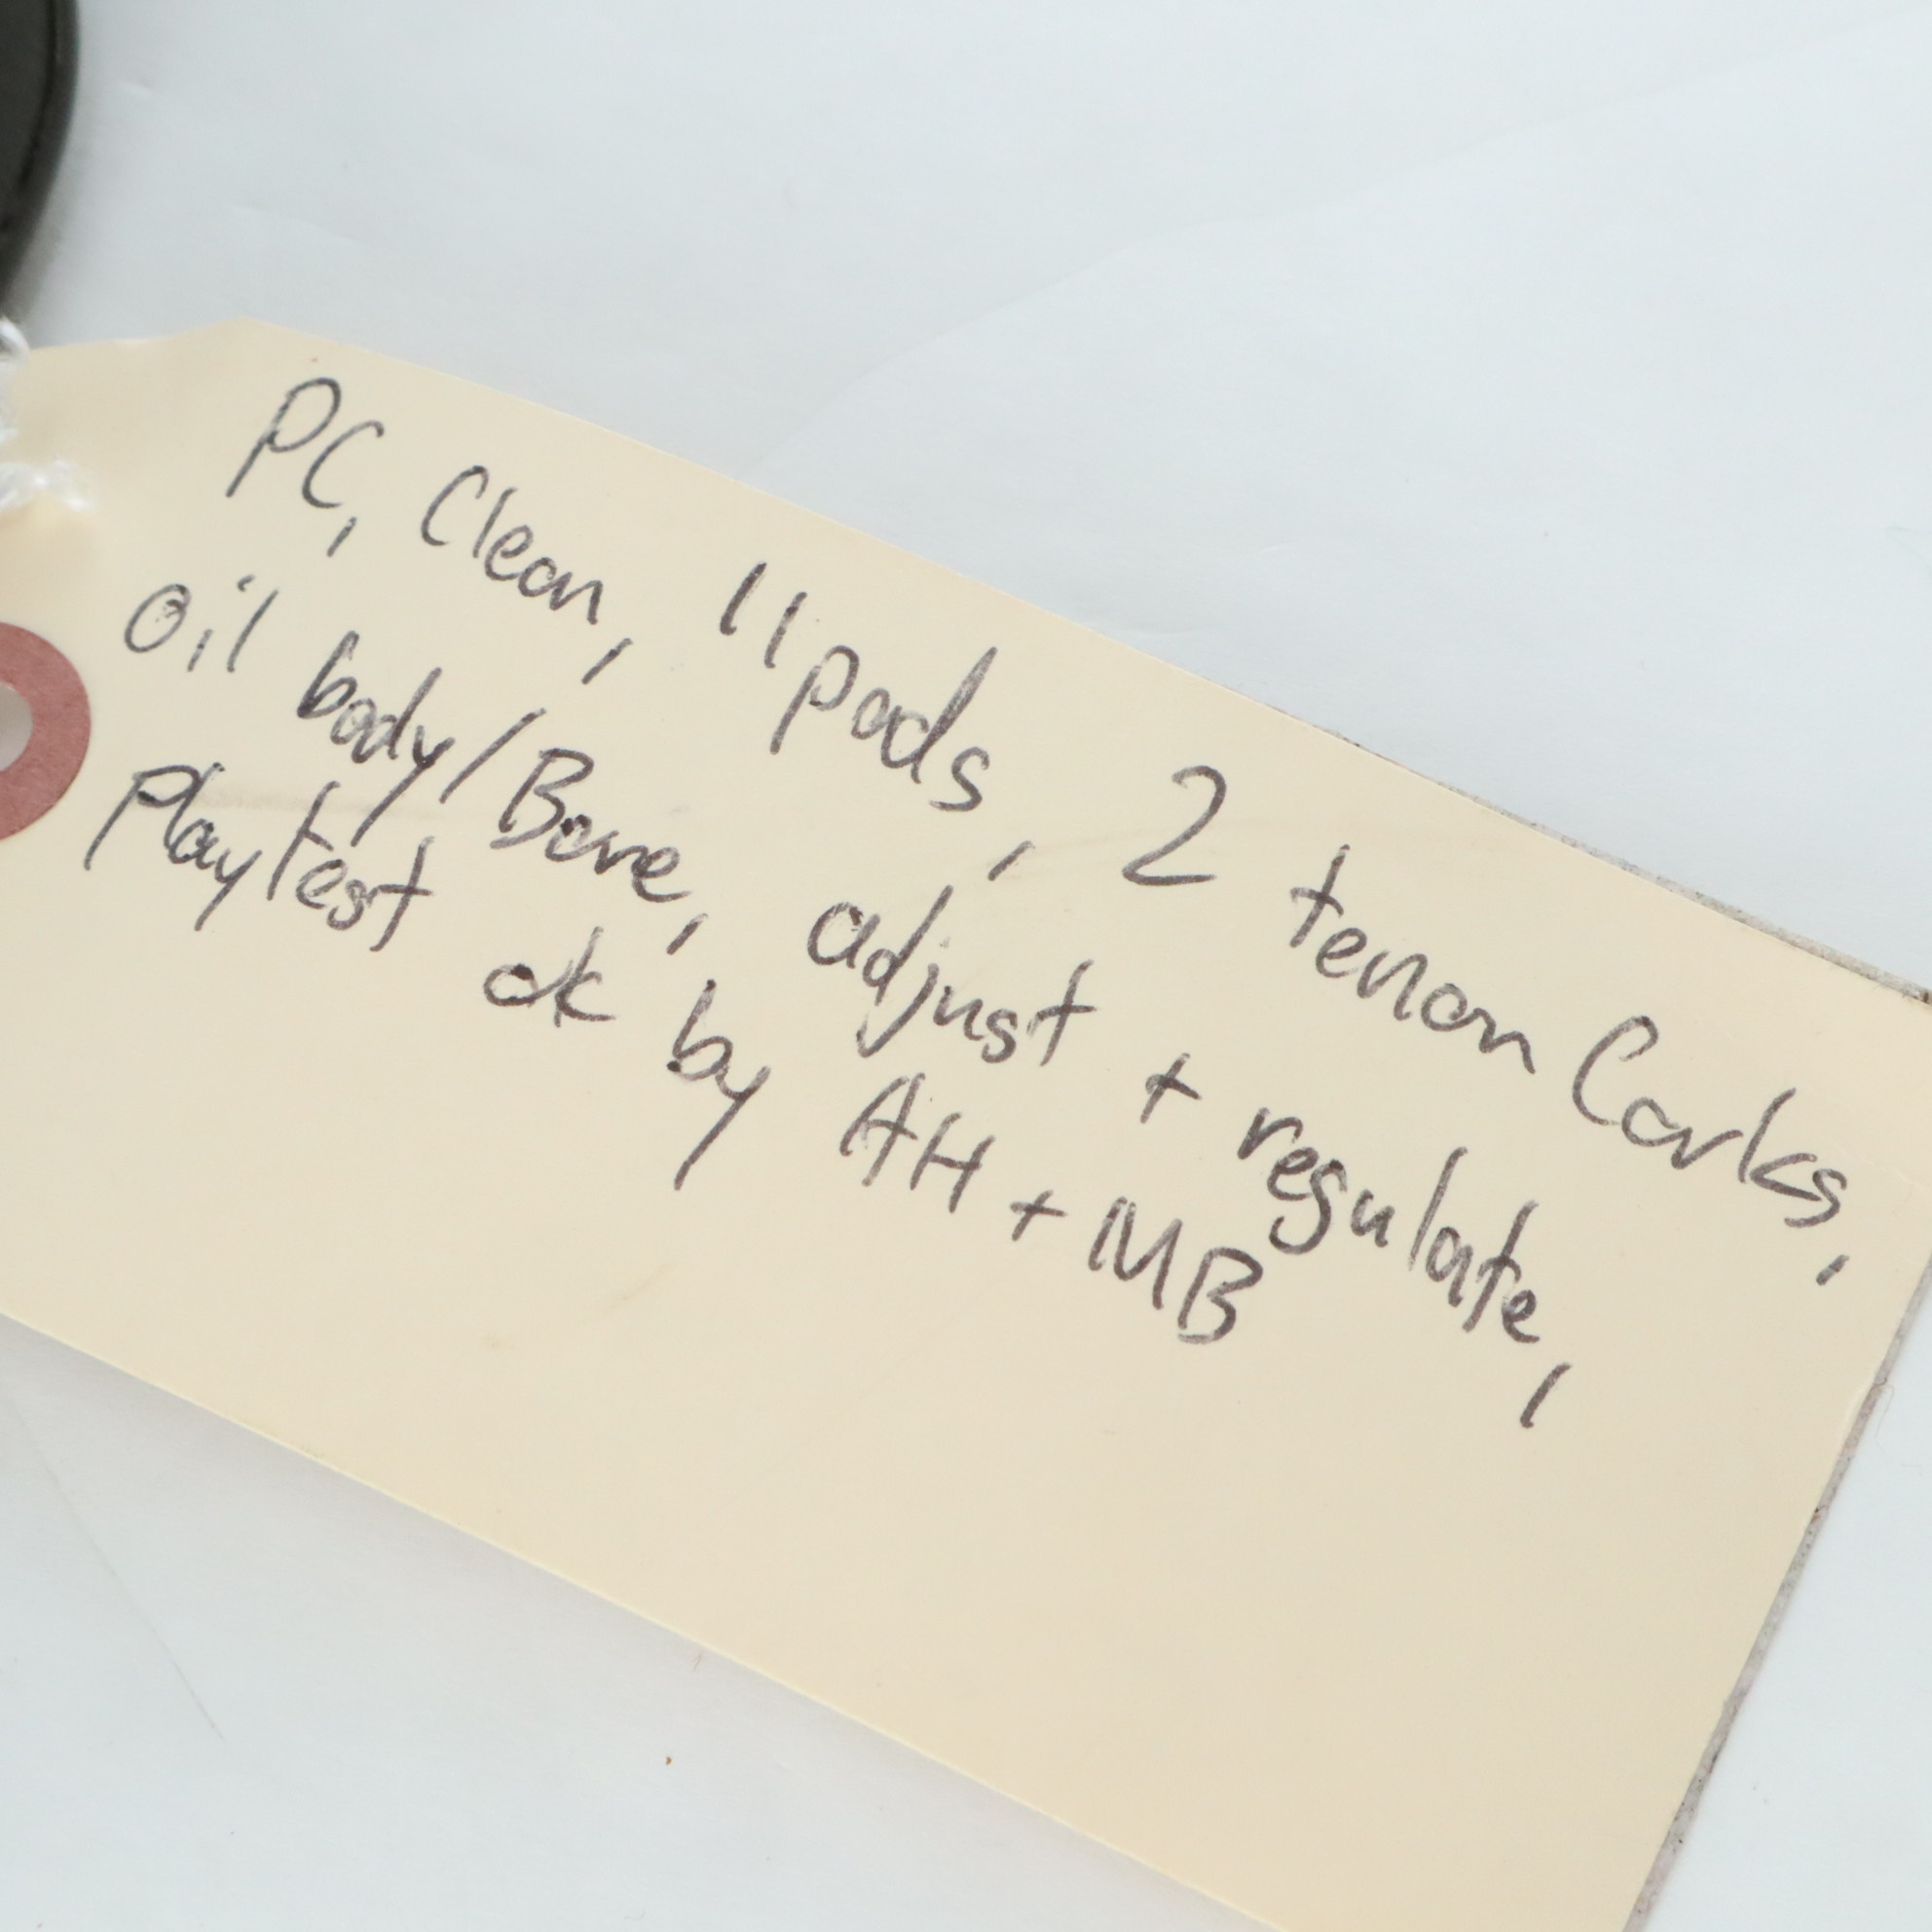 PC, Clean, 11 pads, 2 tenon Corks,
Oil body/Bore, adjust + regulate,
Playtest ok by AH + MB